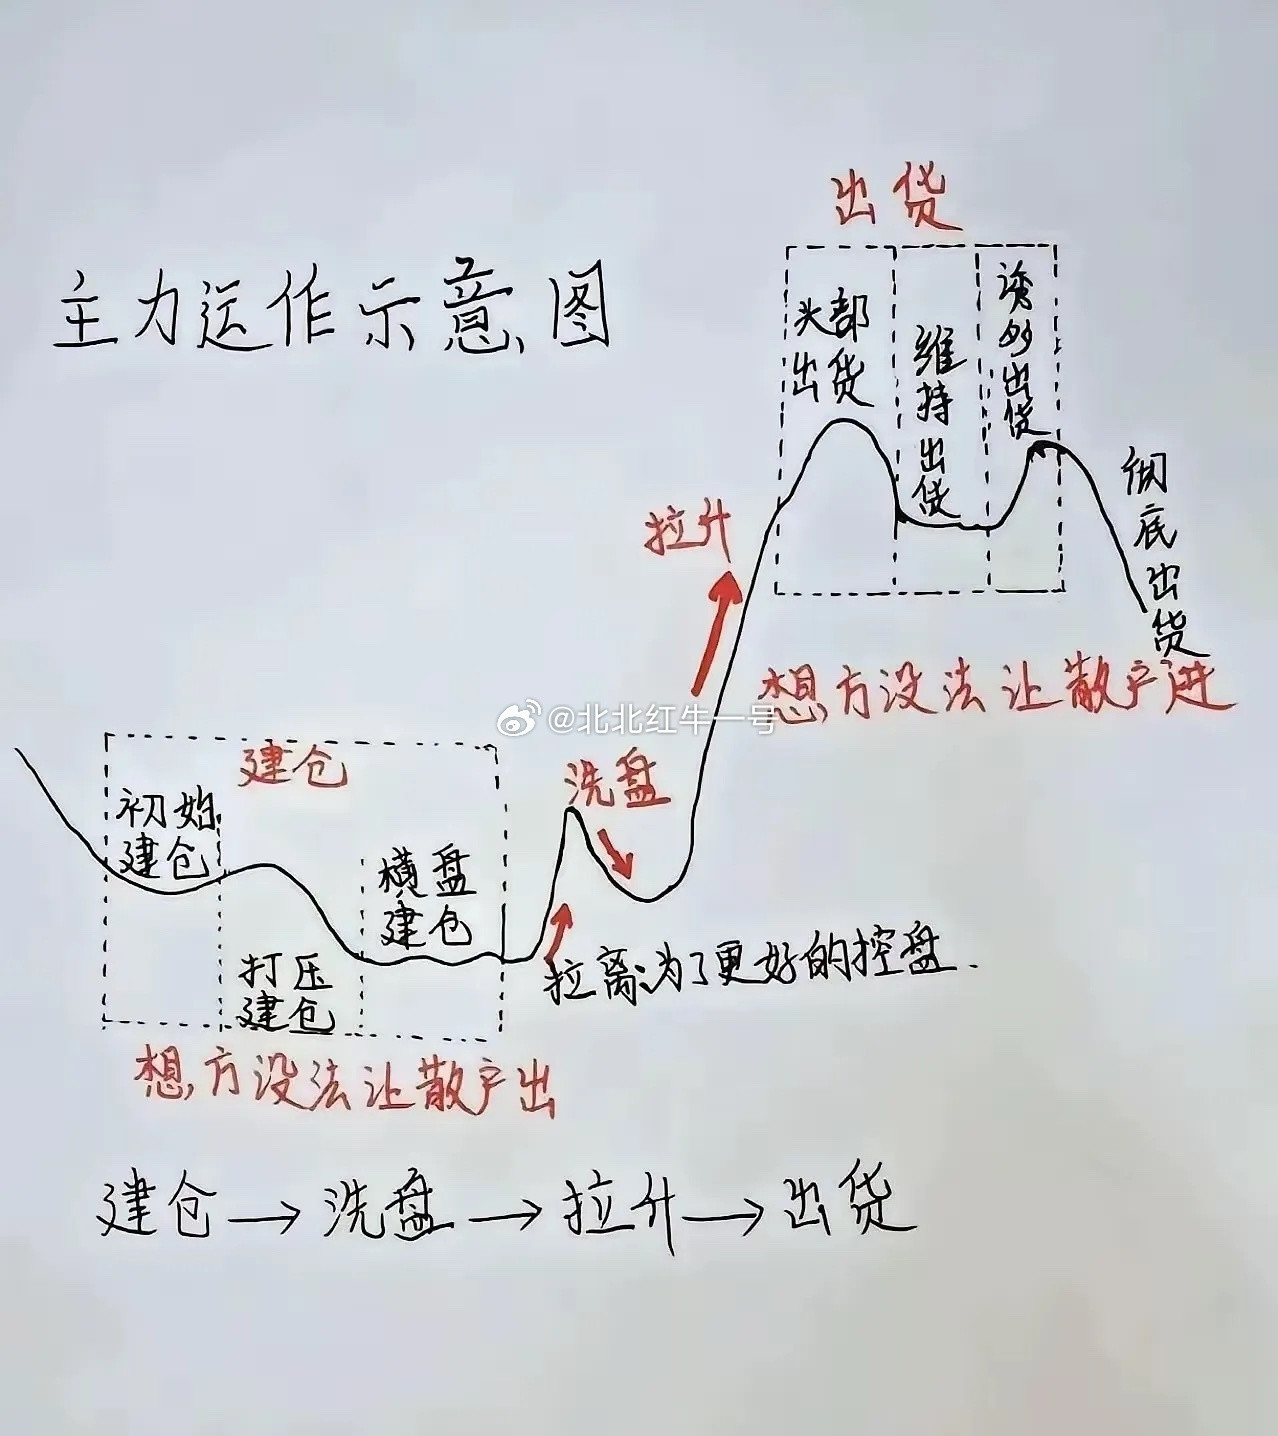 主力运作示意图
出货
头部
出货
维持出货
诱多出货
彻底出货
拉升
想方设法让散户进
@北北红牛一号
建仓
初始
建仓
打压
建仓
横盘
建仓
洗盘
拉离:为了更好的控盘.
想方没法让散户出
建仓→洗盘→拉升→出货